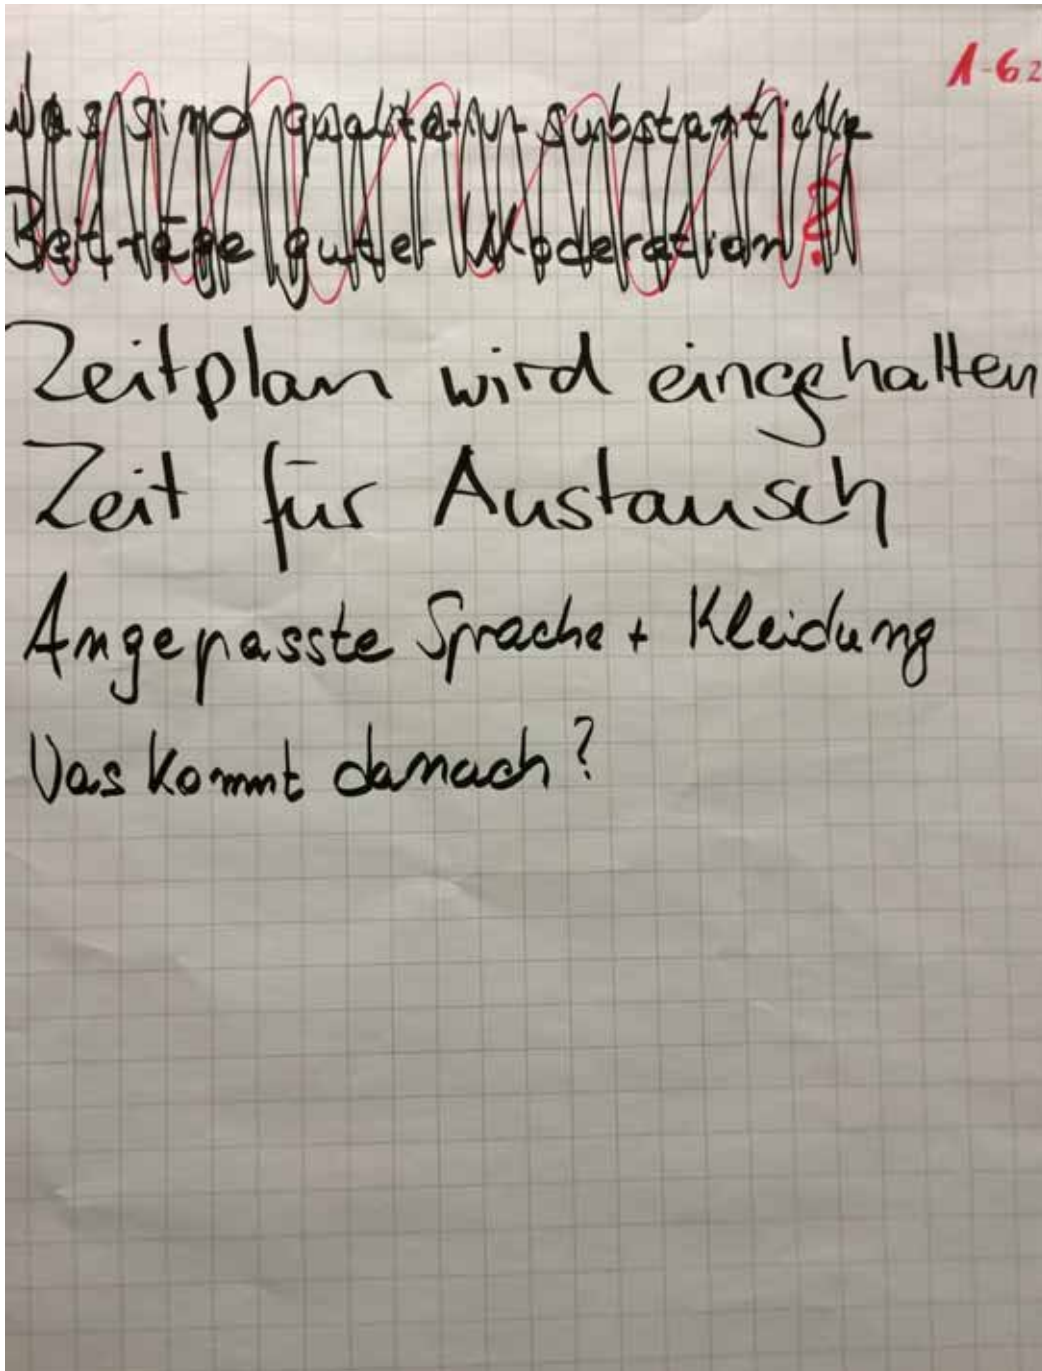 1-62
Was sind qualitativ substantielle
Beiträge guter Moderation?
Zeitplan wird eingehalten
Zeit für Austausch
Angepasste Sprache + Kleidung
Was kommt danach?